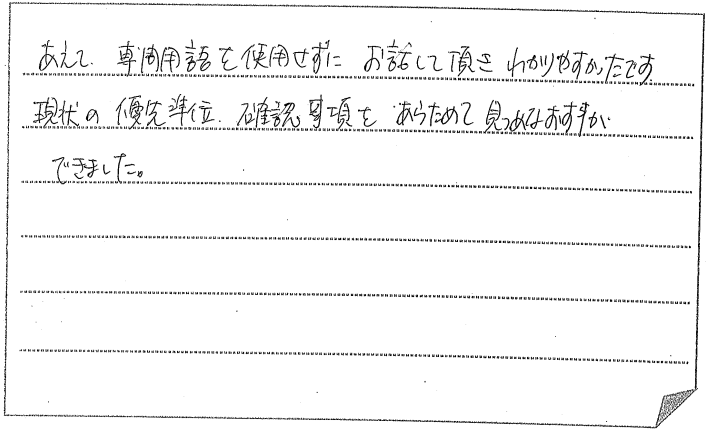 あえて、専門用語を使用せずに お話して頂き わかりやすかったです。
現状の優先準位、確認事項を あらためて 見つめなおす事が
できました。